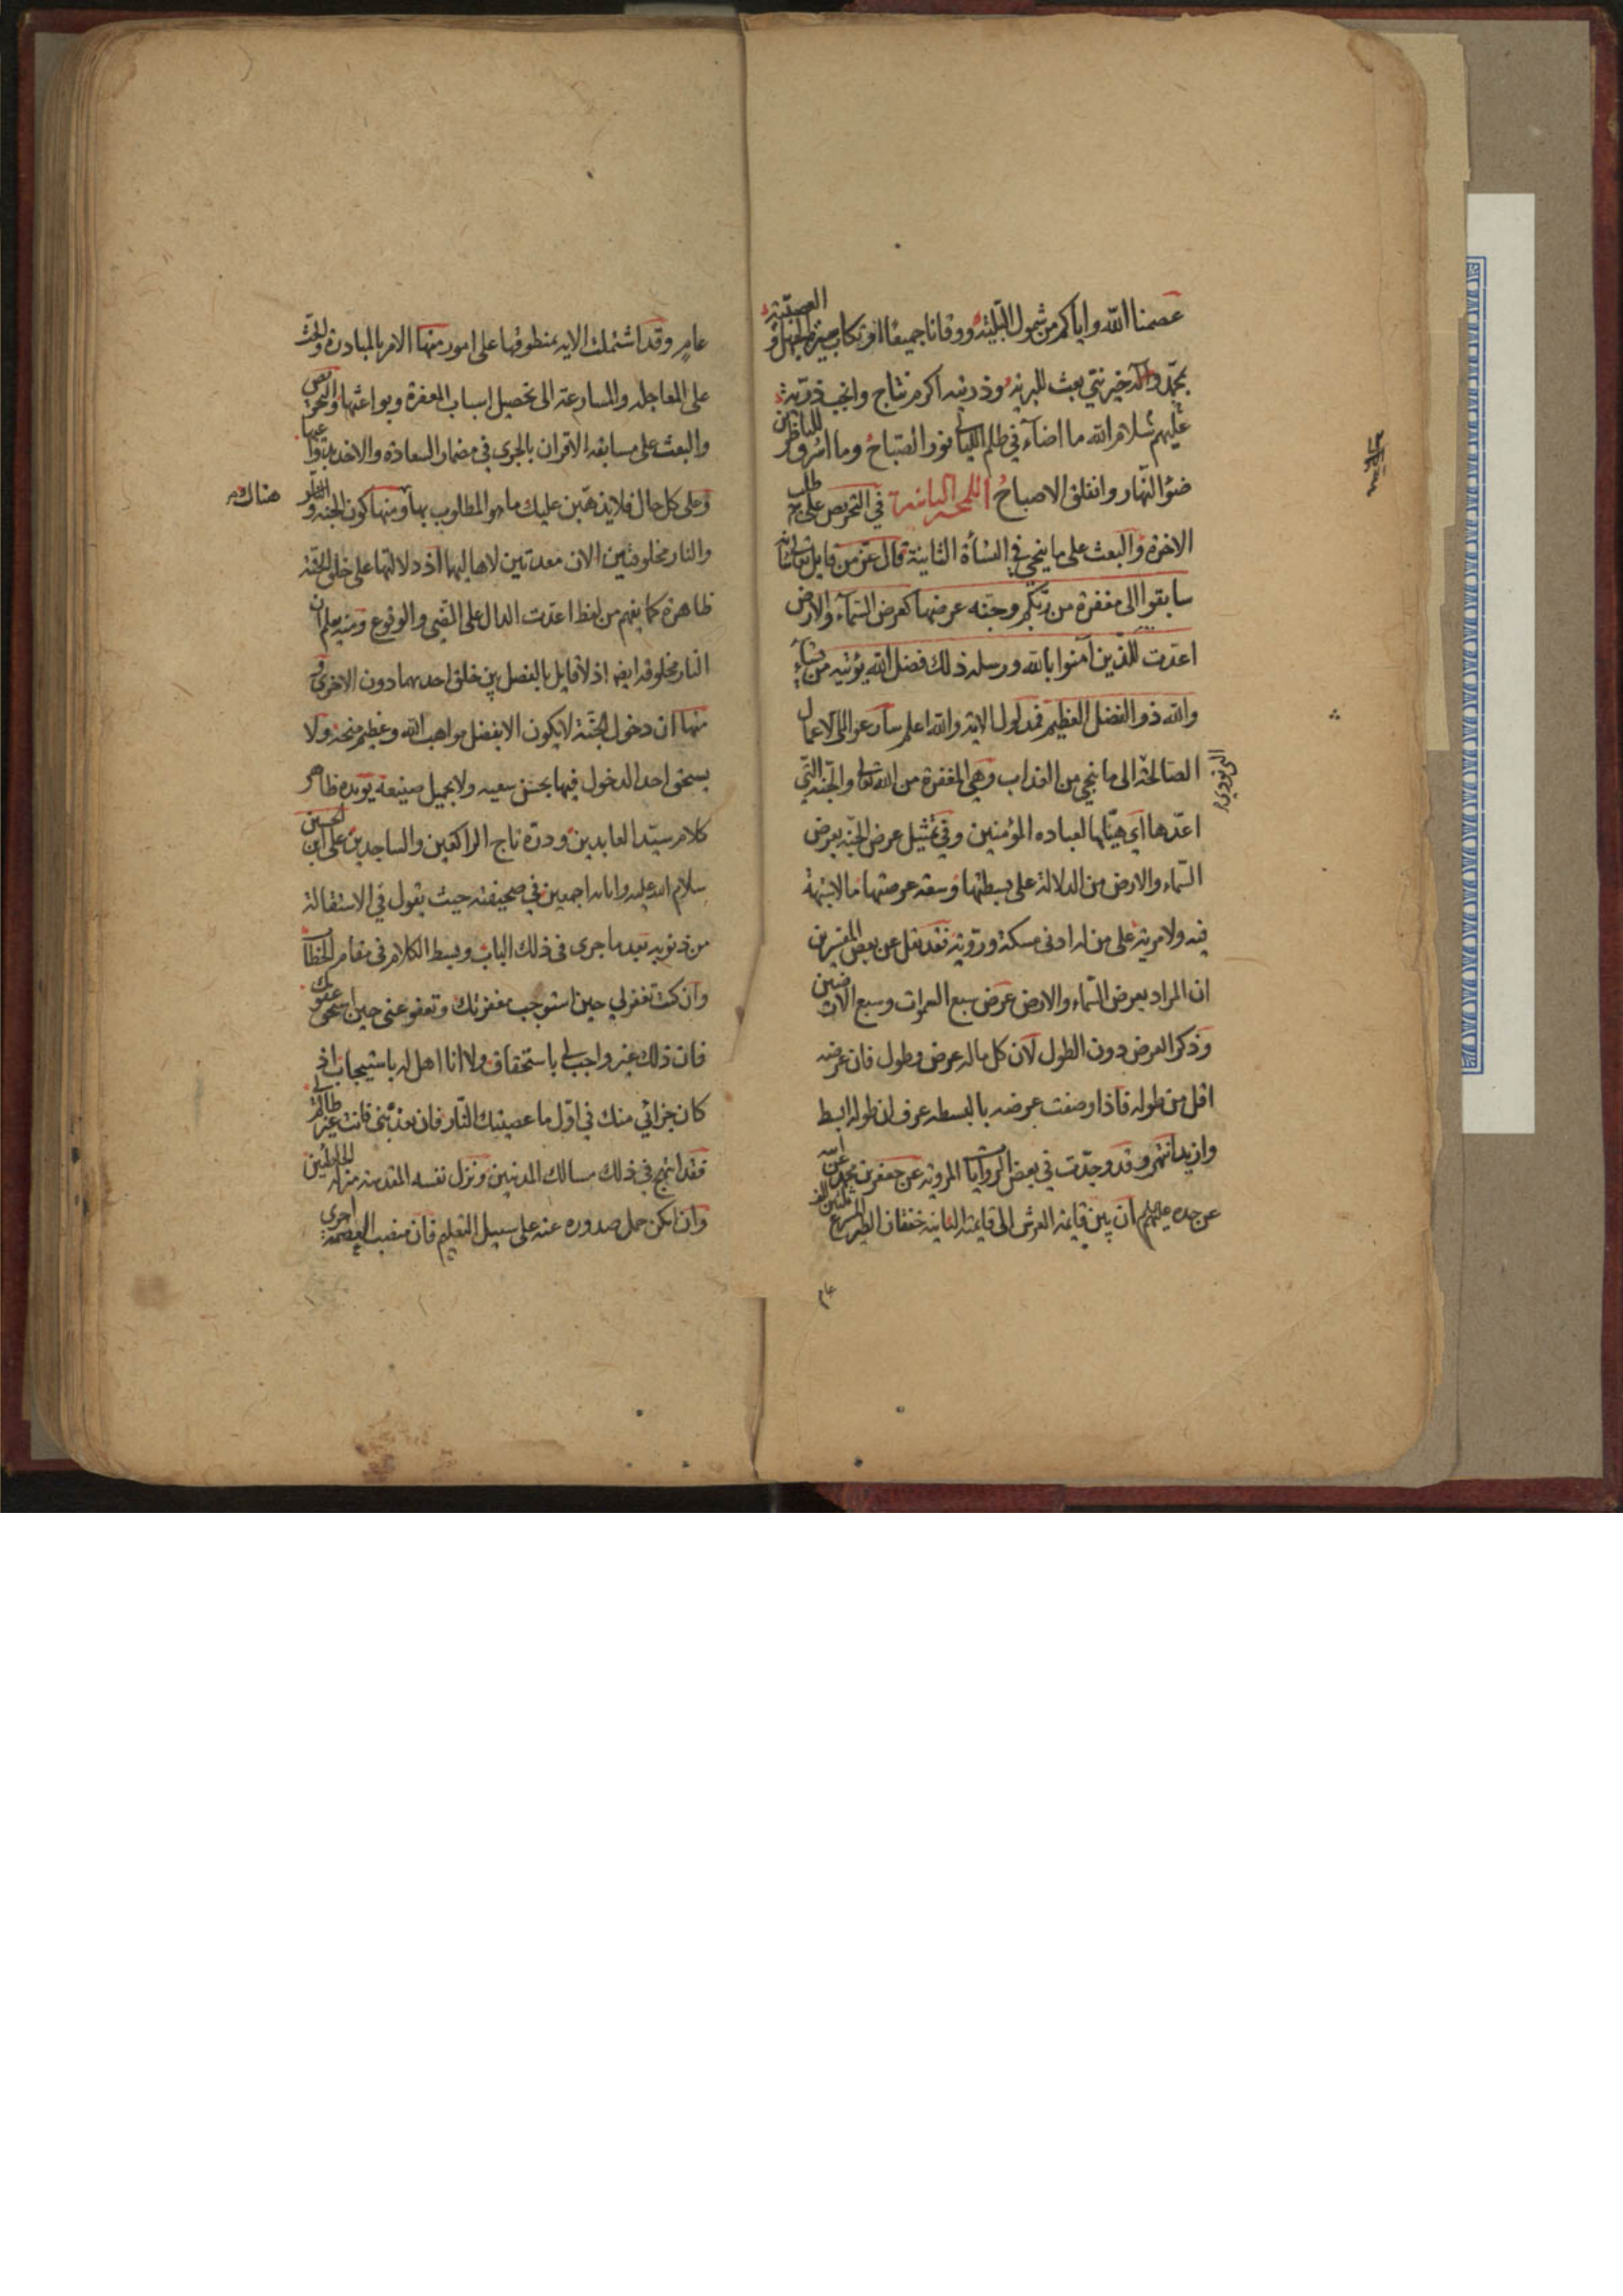 عصمنا الله واياكم من شمول البليّة ووقانا جميعا ارتكاب الجهل و العصبيّة
بمحمّد وآله خير نبيّ بعث للبريّة وذريته اكرم نتاج وانجب ذريّة
عليهم سلام الله ما اضاء في ظلم الليالى نور الصباح وما اشرق للناظرين
ضوء النّهار وانفلق الاصباح اللمحة الثامنة في التحريص على طلب
الاخرة والبعث على ما ينجي في النشأة الثانية قال عز من قايل تعالى شانه
سابقوا الى مغفرة من ربّكم وجنّة عرضها كعرض السّماء والارض
اعدّت للّذين آمنوا بالله ورسله ذلك فضل الله يؤتيه من يشاء
والله ذو الفضل العظيم فمدلول الآية والله اعلم سارعوا الى الاعمال
الصالحة الى ما ينجي من العذاب وهي المغفرة من الله تعالى والجنّة الّتي
اعدّها اي هيّأها لعباده المؤمنين وفي تمثيل عرض الجنّة بعرض
السّماء والارض من الدلالة على بسطتها وسعة عرصتها ما لا شبهة
فيه ولا مرية على من له ادنى مسكة ورويّة فقد نقل عن بعض المفسّرين
ان المراد بعرض السّماء والارض عرض سبع السموات وسبع الارضين
وذكر العرض دون الطول لان كل ما له عرض وطول فان عرضه
اقل من طوله فاذا وصفت عرضه بالبسطة عرف ان طوله ابسط
وازيد انتهى وقد وجدت في بعض الروايات المروية عن جعفر بن محمد عن ابيه
عن جده عليهم ان بين قايمة العرش الى قايمته الثانية خفقان الطير المسرع ثلثين الف
عام
عام وقد اشتملت الاية بمنطوقها على امور منها الامر بالمبادرة والحثّ
على المعاجلة والمسارعة الى تحصيل اسباب المغفرة وبواعثها والتحريص
والبعث على مسابقة الاقران بالجرى في مضمار السعادة والاخذ
وعلى كل حال فلا يذهبن عليك ما هو المطلوب بها ومنها كون الجنة و النار هناك
والنار مخلوقتين الان معدتين لاهاليهما اذ دلالتها على خلق الجنّة
ظاهرة كما يفهم من لفظ اعدّت الدال على المضي والوقوع ومنه يعلم ان
النار مخلوقة ايضا اذ لا قايل بالفصل بين خلق احديهما دون الاخرى و
منها ان دخول الجنّة لا يكون الا بفضل مواهب الله وعظيم منحه ولا
يستحق احد الدخول فيها بحسن سعيه ولا بجميل صنيعه يؤيده ظاهر
كلام سيّد العابدين ودرة تاج الراكعين والساجدين على ابن الحسين
سلام الله عليه وابائه اجمعين في صحيفته حيث يقول في الاستقالة
من ذنوبه بعد ما جرى في ذلك الباب وبسط الكلام في مقام الخطاب
وان كنت تغفر لي حين استوجب مغفرتك وتعفو عني حين استحق عفوك
فان ذلك غير واجب لي باستحقاق ولا انا اهل له باستيجاب اذ
كان جزائي منك في اوّل ما عصيتك النّار فان تعذّبني فانت غير ظالم لي
فقد انتهج في ذلك مسالك المذنبين ونزل نفسه المقدسة منزلة الخاطئين
وان امكن حمل صدوره عنه على سبيل التعليم فان منصب العصمة احرى